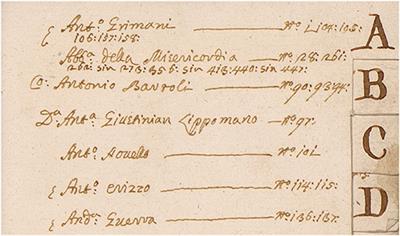 { Ant.º Grimani — Nº 1, 104: 105:
106: 157: 158:
Abb.ª della Misericordia — Nº 128: 261:
262: sin 273: 355: sin 413: 440: sin 447:
Co: Antonio Bavroli — Nº 90: 93: 94:
D.ª Ant.ª Giustinian Lippomano — Nº 97:
Ant.º Novello — Nº 101
{ Ant.º Erizzo — Nº 114: 115:
{ And.ª Guerra — Nº 136: 137:
A
B
C
D